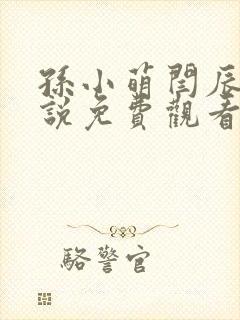 孫小萌閆辰
說免費觀看
駱警官